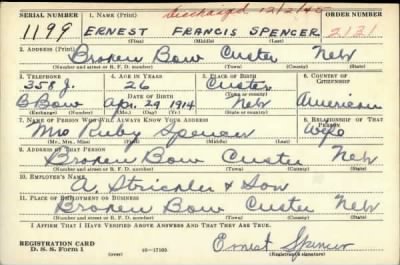 Discharged 12/2/45
SERIAL NUMBER 1. NAME (Print) ORDER NUMBER
1199 ERNEST FRANCIS SPENCER 2131
(First) (Middle) (Last)
2. ADDRESS (Print)
Broken Bow Custer Nebr
(Number and street or R. F. D. number) (Town) (County) (State)
3. TELEPHONE 4. AGE IN YEARS 5. PLACE OF BIRTH 6. COUNTRY OF CITIZENSHIP
358 J. 26 Custer
(Town or county)
B Bow DATE OF BIRTH Apr. 29 1914 Nebr American
(Exchange) (Number) (Mo.) (Day) (Yr.) (State or country)
7. NAME OF PERSON WHO WILL ALWAYS KNOW YOUR ADDRESS 8. RELATIONSHIP OF THAT PERSON
Mrs Ruby Spencer Wife
(Mr., Mrs., Miss) (First) (Middle) (Last)
9. ADDRESS OF THAT PERSON
Broken Bow Custer Nebr
(Number and street or R. F. D. number) (Town) (County) (State)
10. EMPLOYER'S NAME
A. Strickler & Son
11. PLACE OF EMPLOYMENT OR BUSINESS
Broken Bow Custer Nebr
(Number and street or R. F. D. number) (Town) (County) (State)
I AFFIRM THAT I HAVE VERIFIED ABOVE ANSWERS AND THAT THEY ARE TRUE.
REGISTRATION CARD
D. S. S. Form 1 (over) 16—17105 Ernest Spencer
(Registrant's signature)